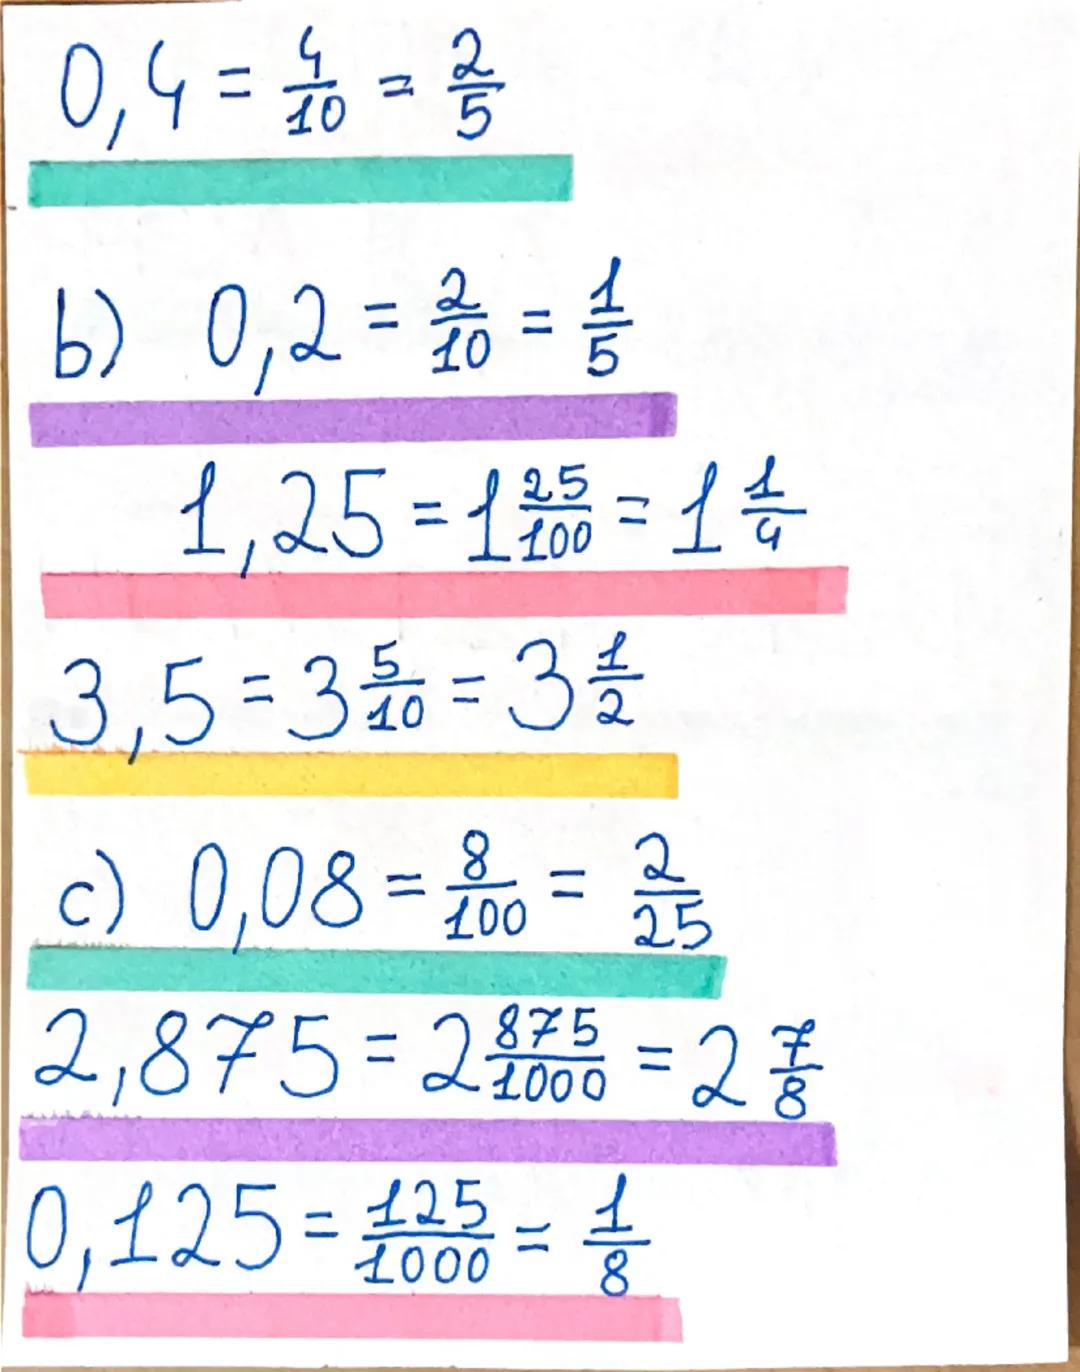 0,4 = 4/10 = 2/5
b) 0,2 = 2/10 = 1/5
1,25 = 1 25/100 = 1 1/4
3,5 = 3 5/10 = 3 1/2
c) 0,08 = 8/100 = 2/25
2,875 = 2 875/1000 = 2 7/8
0,125 = 125/1000 = 1/8